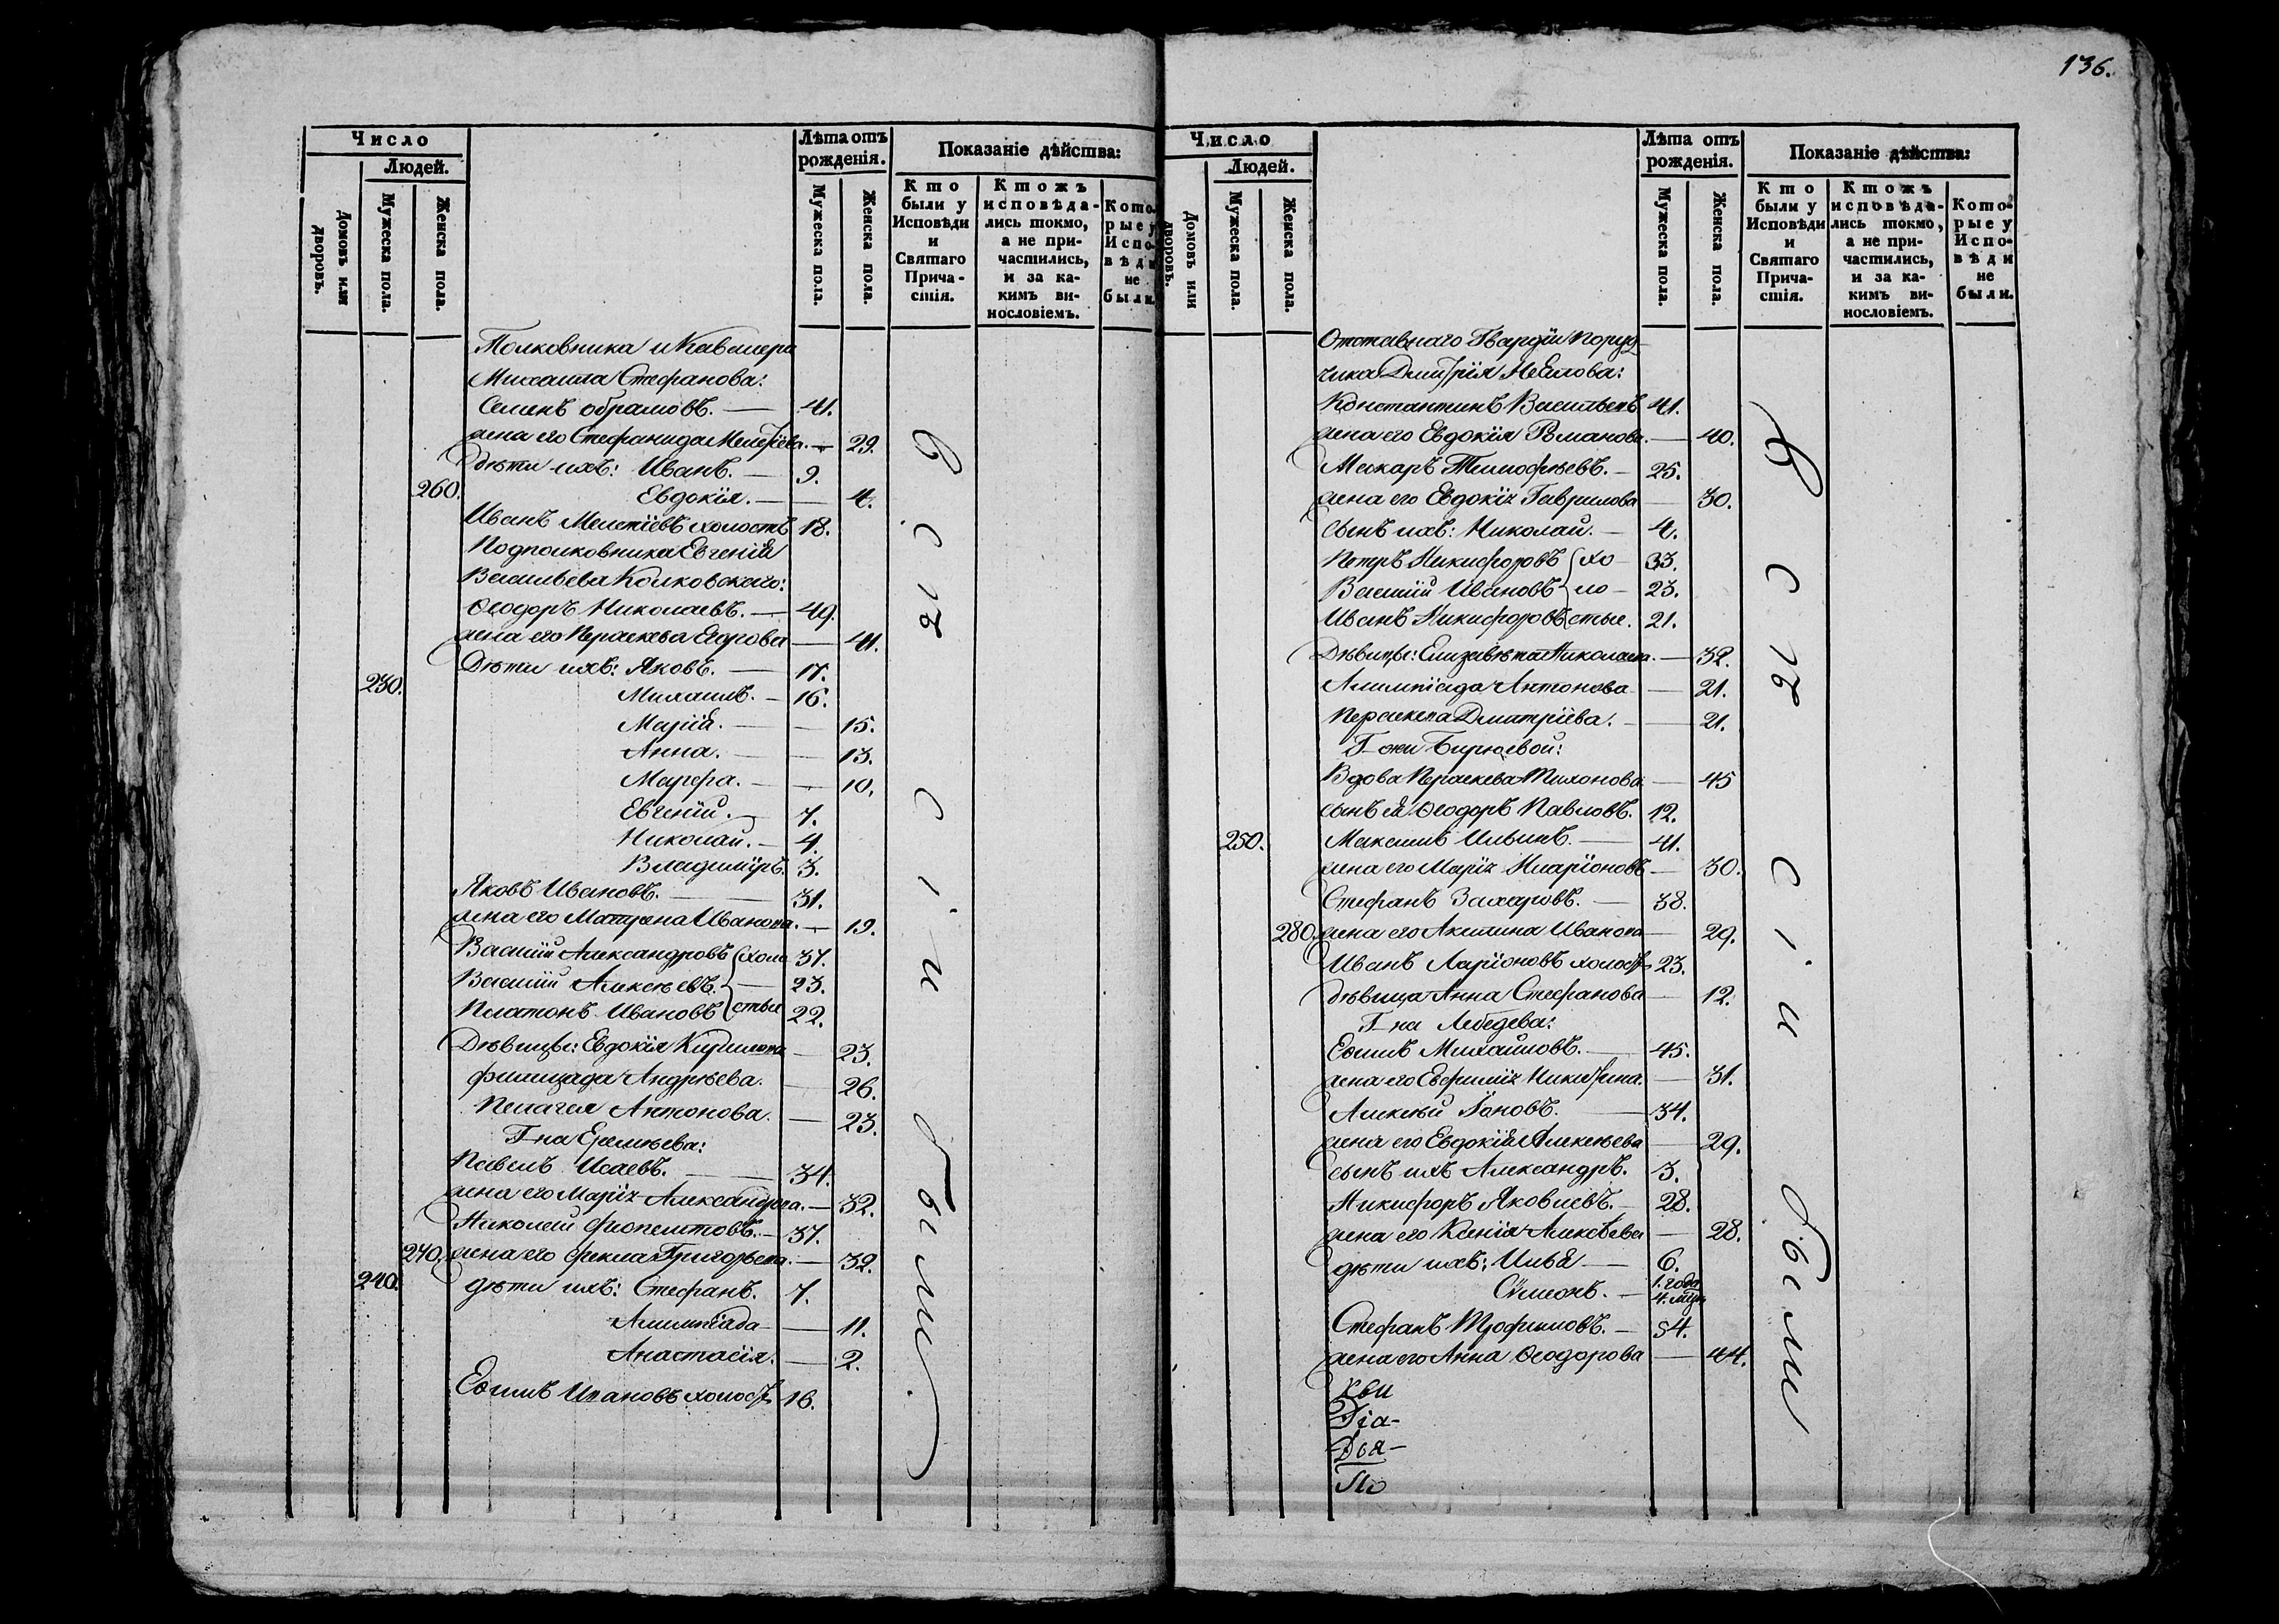 136.
Число
Людей.
Домовъ или дворовъ.
Мужеска пола.
Женска пола.
Лѣта отъ рожденія.
Мужеска пола.
Женска пола.
Показаніе дѣйства:
Кто были у Исповѣди и Святаго Прича-стія.
Ктожъ исповѣда-лись токмо, а не при-частились, и за ка-кимъ ви-нословіемъ.
Кото-рые у Испо-вѣди не были.
Полковника и Кавалера
Михаила Стефанова:
Семенъ Абрамовъ. — 41.
жена его Стефанида — 29.
дѣти ихъ: Иванъ. — 9.
260. Евдокія. — 4.
Иванъ Мелетіевъ холостъ 18.
Подполковника Евгенія
Васильева
Ѳеодоръ Николаевъ. — 49.
жена его Параскева Егорова — 41.
Дѣти ихъ: Яковъ. — 17.
230. Михаилъ. — 16.
Марія. — 15.
Анна. — 13.
Марфа. — 10.
Евгеній. — 7.
Николай. — 4.
Владиміръ. 3.
Яковъ Ивановъ. — 31.
жена его Матрена Иванова. — 19.
Василій Александровъ холо 37.
Василій Алексѣевъ. — 23.
Платонъ Ивановъ стые 22.
Дѣвицы: Евдокія Кирилова — 23.
Филицада Андрѣева. — 26.
Пелагея Антонова. — 23.
Г-на Еремѣева:
Павелъ Исаевъ. — 34.
жена его Марія Александрова. — 32.
Николай Филиповъ. — 37.
270. жена его Фекла Григорьева. — 32.
240. дѣти ихъ: Стефанъ. 7.
Алимпіада — 11.
Анастасія. — 2.
Ефимъ Ивановъ холостъ 16.
всѣ сіи были.
Число
Людей.
Домовъ или дворовъ.
Мужеска пола.
Женска пола.
Лѣта отъ рожденія.
Мужеска пола.
Женска пола.
Показаніе дѣйства:
Кто были у Исповѣди и Святаго Прича-стія.
Ктожъ исповѣда-лись токмо, а не при-частились, и за ка-кимъ ви-нословіемъ.
Кото-рые у Испо-вѣди не были.
Отставнаго Гвардіи Пору-
чика Дмитрія Неелова:
Константинъ Васильевъ 41.
жена его Евдокія Романова. — 40.
Макаръ Тимофѣевъ. — 25.
жена его Евдокія Гаврилова — 30.
сынъ ихъ: Николай. — 4.
Петръ Никифоровъ хо- 33.
Василій Ивановъ ло- 23.
Иванъ Никифоровъ стые. 21.
Дѣвицы: Елизавета Николаева. — 32.
Алимпіада Антонова — 21.
Параскева Дмитріева. — 21.
Г-жи Бирюевой:
Вдова Параскева Тихонова — 45
сынъ ея Ѳеодоръ Павловъ. 12.
250. Максимъ Ильинъ. — 41.
жена его Марія Иларіонова — 30.
Стефанъ Захаровъ. — 38.
280. жена его Акилина Иванова — 29.
Иванъ Ларіоновъ холостъ 23.
дѣвица Анна Стефанова — 12.
Г-на Лебедева:
Ефимъ Михайловъ. — 45.
жена его Евфимія Никитина. — 31.
Алексѣй Іоновъ. — 34.
жена его Евдокія Алексѣева — 29.
сынъ ихъ Александръ. 3.
Никифоръ Яковлевъ. — 28.
жена его Ксенія Алексѣева — 28.
дѣти ихъ: Илья — 6.
Сѵмеонъ. — 1. года 4. мца
Стефанъ Трофимовъ. — 54.
жена его Анна Ѳеодорова — 44.
всѣ сіи были
Діа-
Дья-
По